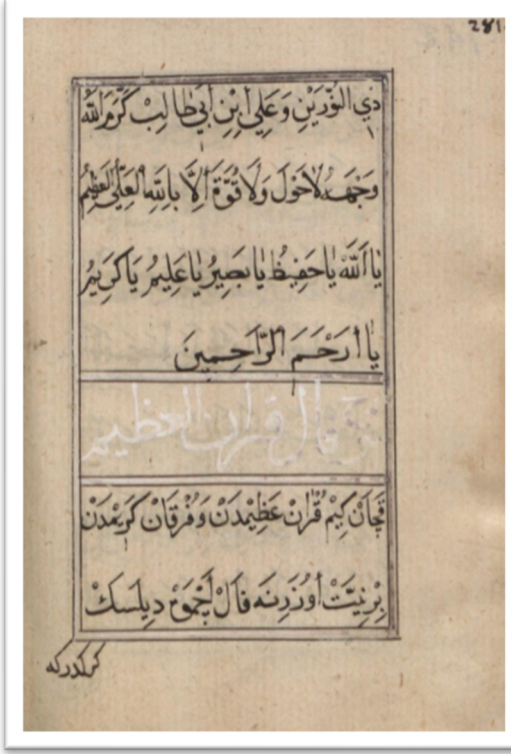 281
ذي النُّورَيْنِ وَعَلِي أِبْنِ أَبِي طَالِبْ كَرَّمَ اللّٰه
وَجْهَهُ لاَحَوْلَ وَلَا قُوَّةَ اَلِّا بِاللّٰهِ الْعَلِّيُ الْعَظِيمُ
يَا اَللّٰهُ يَاحَفِيظُ يَا بَصِيرُ يَا عَلِيمُ يَا كَرِيمُ
يَا أَرْحَمَ الرَّاحِمِينَ
فال قران العظيم
قَچَانْ كِيمْ قُرْاٰنْ عَظِيْمْدَنْ وَفُرْقَانْ كَرِيْمْدَنْ
بِرْ نِيَّتْ اُوزَرِنَه فَالْ اَچْمَقْ دِيلَسَكْ
كركدركه